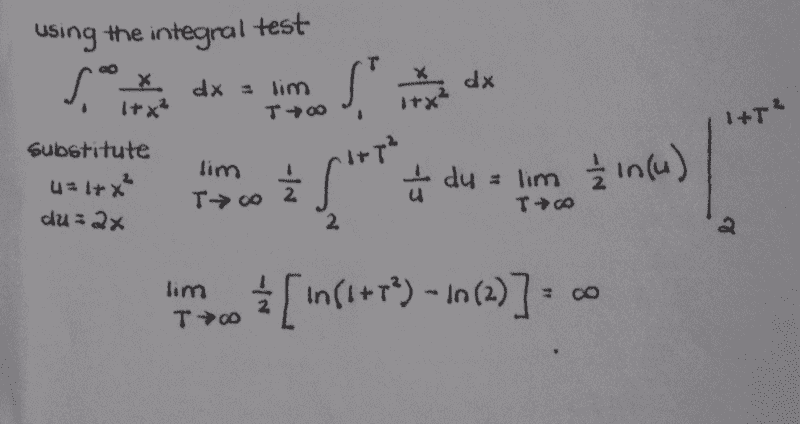 using the integral test
∫₁^∞ x/(1+x²) dx = lim T→∞ ∫₁^T x/(1+x²) dx
substitute
u = 1+x²
du = 2x
lim T→∞ 1/2 ∫₂^(1+T²) 1/u du = lim T→∞ 1/2 ln(u) |₂^(1+T²)
lim T→∞ 1/2 [ln(1+T²) - ln(2)] = ∞